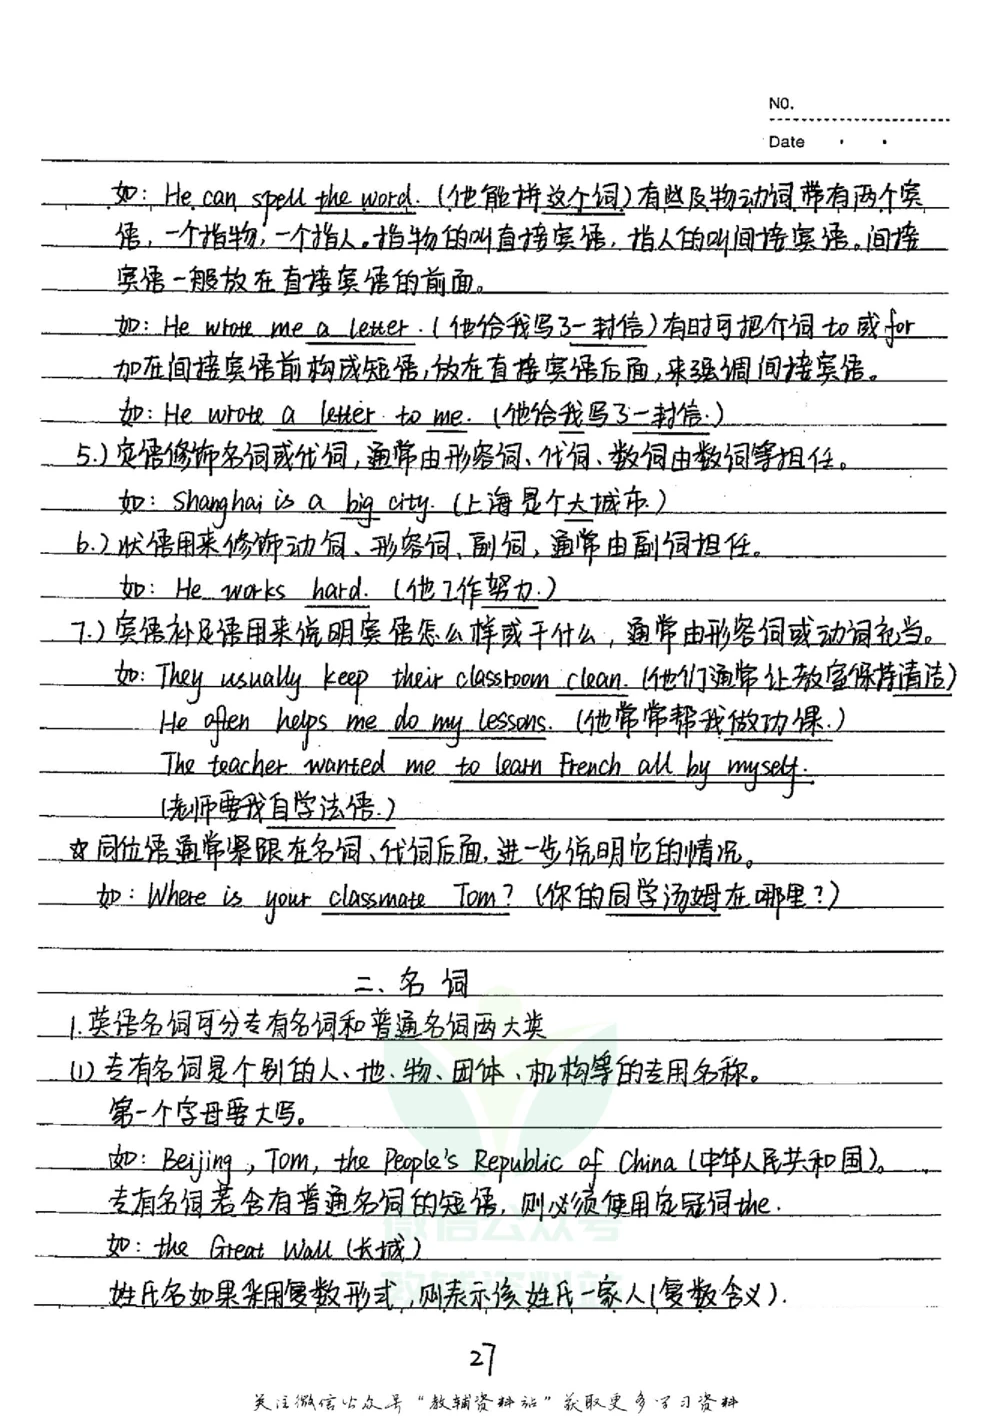 NO.
Date
如: He can spell the word. (他能拼这个词) 有些及物动词带有两个宾
语，一个指物，一个指人。指物的叫直接宾语，指人的叫间接宾语。间接
宾语一般放在直接宾语的前面。
如: He wrote me a letter. (他给我写了一封信) 有时可把介词 to 或 for
加在间接宾语前构成短语,放在直接宾语后面,来强调间接宾语。
如: He wrote a letter to me. (他给我写了一封信.)
5.) 定语修饰名词或代词, 通常由形容词、代词、数词由数词等担任。
如: Shanghai is a big city. (上海是个大城市.)
6.) 状语用来修饰动词、形容词、副词，通常由副词担任。
如: He works hard. (他工作努力.)
7.) 宾语补足语用来说明宾语怎么样或干什么，通常由形容词或动词充当。
如: They usually keep their classroom clean. (他们通常让教室保持清洁)
He often helps me do my lessons. (他常常帮我做功课.)
The teacher wanted me to learn French all by myself.
(老师要我自学法语.)
☆同位语通常紧跟在名词、代词后面,进一步说明它的情况。
如: Where is your classmate Tom? (你的同学汤姆在哪里?)
二、名词
1.英语名词可分专有名词和普通名词两大类
(1) 专有名词是个别的人、地、物、团体、机构等的专用名称。
第一个字母要大写。
如: Beijing, Tom, the People's Republic of China (中华人民共和国)。
专有名词若含有普通名词的短语, 则必须使用定冠词the.
如: the Great Wall (长城)
姓氏名如果采用复数形式,则表示该姓氏一家人(复数含义).
微信公众号
教辅资料站
27
关注微信公众号“教辅资料站”获取更多学习资料